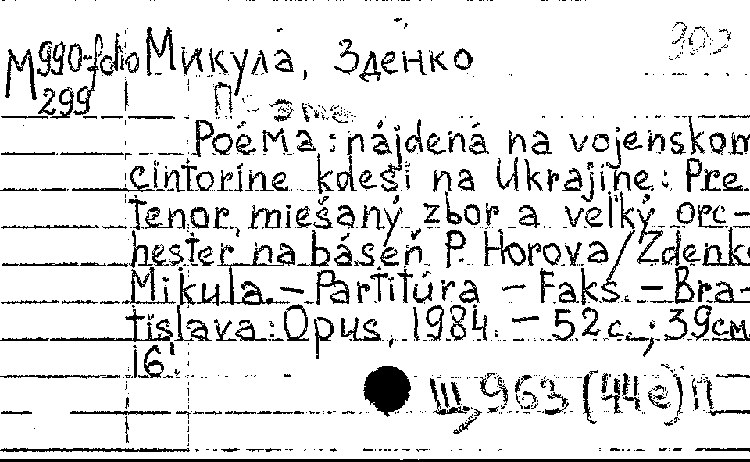 М 990-folio Микула, Зденко 302
299 Поэма
Poéma: nájdená na vojenskom
cintoríne kdesi na Ukrajine: Pre
tenor, miešaný zbor a veľký orc-
hester, na báseň P. Horova/Zdenko
Mikula. — Partitúra — Faks. — Bra-
tislava: Opus, 1984. — 52 с.; 39 см
16'.
Щ 963 (44е)П